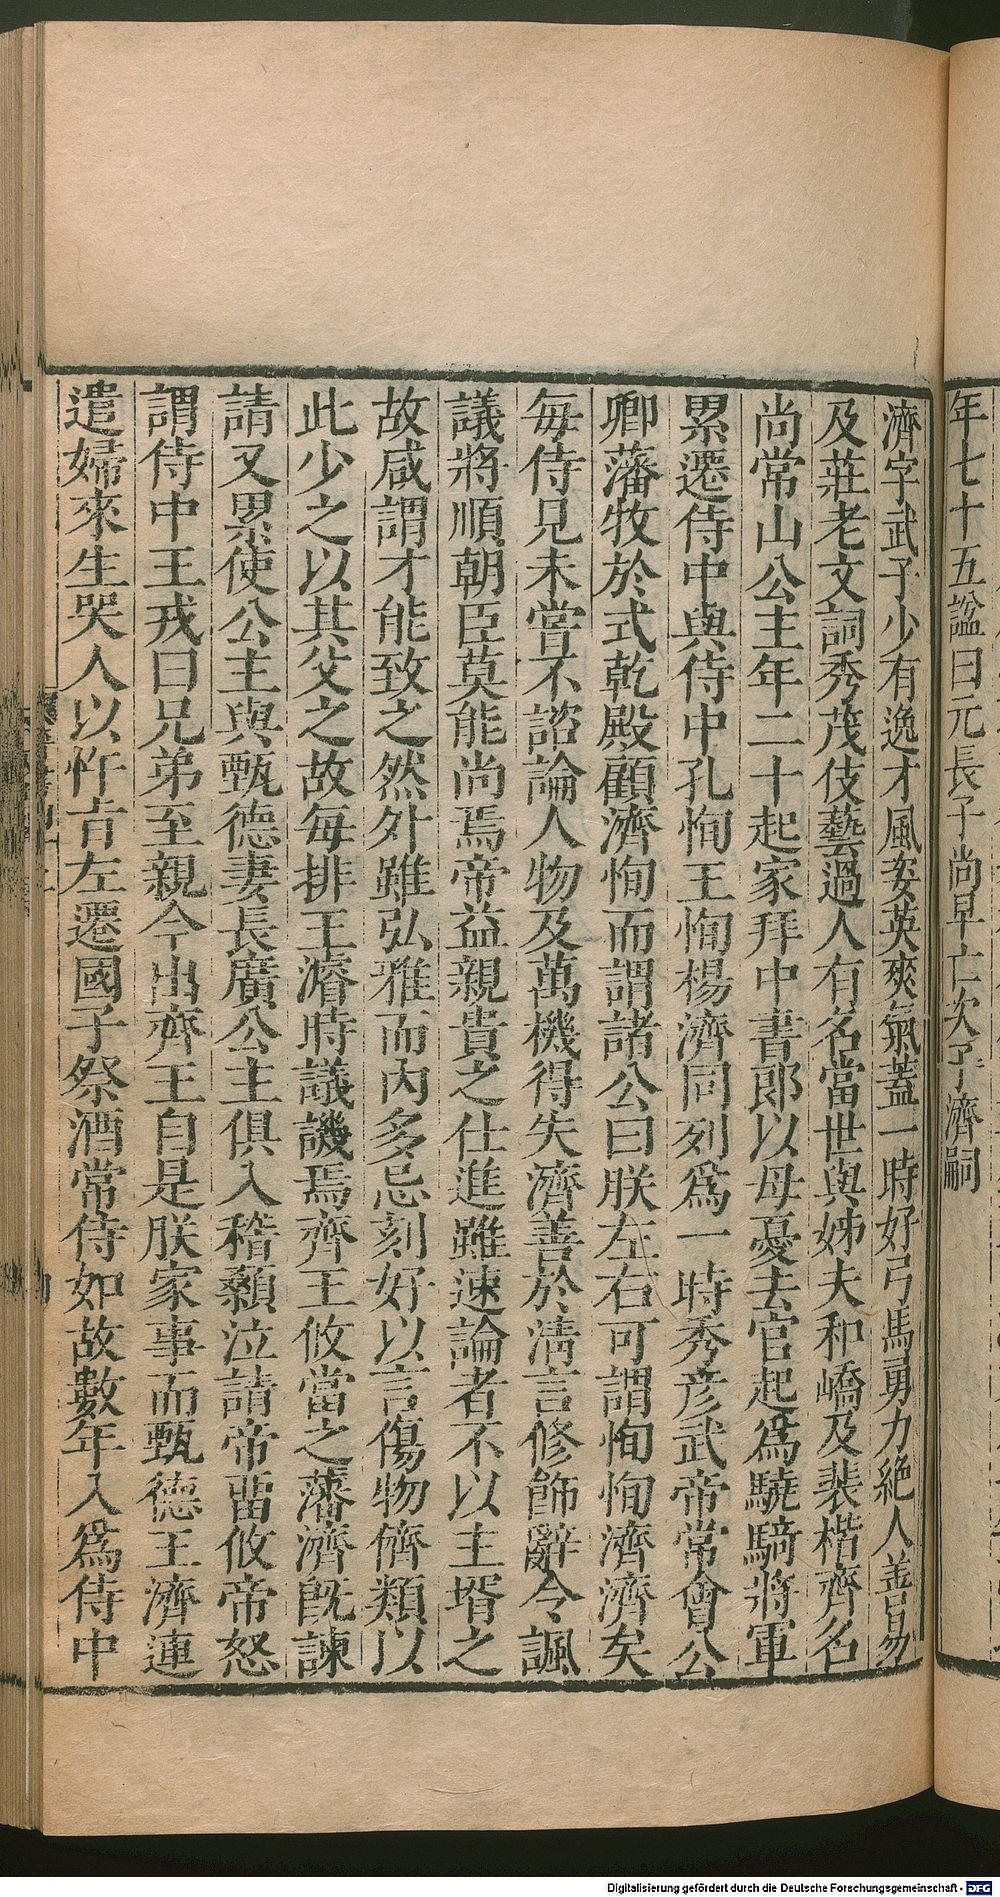 年七十五諡曰元長子尚早亡次子濟嗣
濟字武子少有逸才風姿英爽氣蓋一時好弓馬勇力絶人善易
及莊老文詞秀茂伎藝過人有名當世與姊夫和嶠及裴楷齊名
尚常山公主年二十起家拜中書郎以母憂去官起爲驍騎將軍
累遷侍中與侍中孔恂王恂楊濟同列爲一時秀彦武帝常會公
卿藩牧於式乾殿顧濟恂而謂諸公曰朕左右可謂恂恂濟濟矣
每侍見未嘗不諮論人物及萬機得失濟善於清言修飾辭令諷
議將順朝臣莫能尚焉帝益親貴之仕進雖速論者不以主壻之
故咸謂才能致之然外雖弘雅而内多忌刻好以言傷物儕類以
此少之以其父之故每排王濬時議譏焉齊王攸當之藩濟既諫
請又累使公主與甄德妻長廣公主俱入稽顙泣請帝畱攸帝怒
謂侍中王戎曰兄弟至親今出齊王自是朕家事而甄德王濟連
遣婦來生哭人以忤旨左遷國子祭酒常侍如故數年入爲侍中
Digitalisierung gefördert durch die Deutsche Forschungsgemeinschaft - DFG